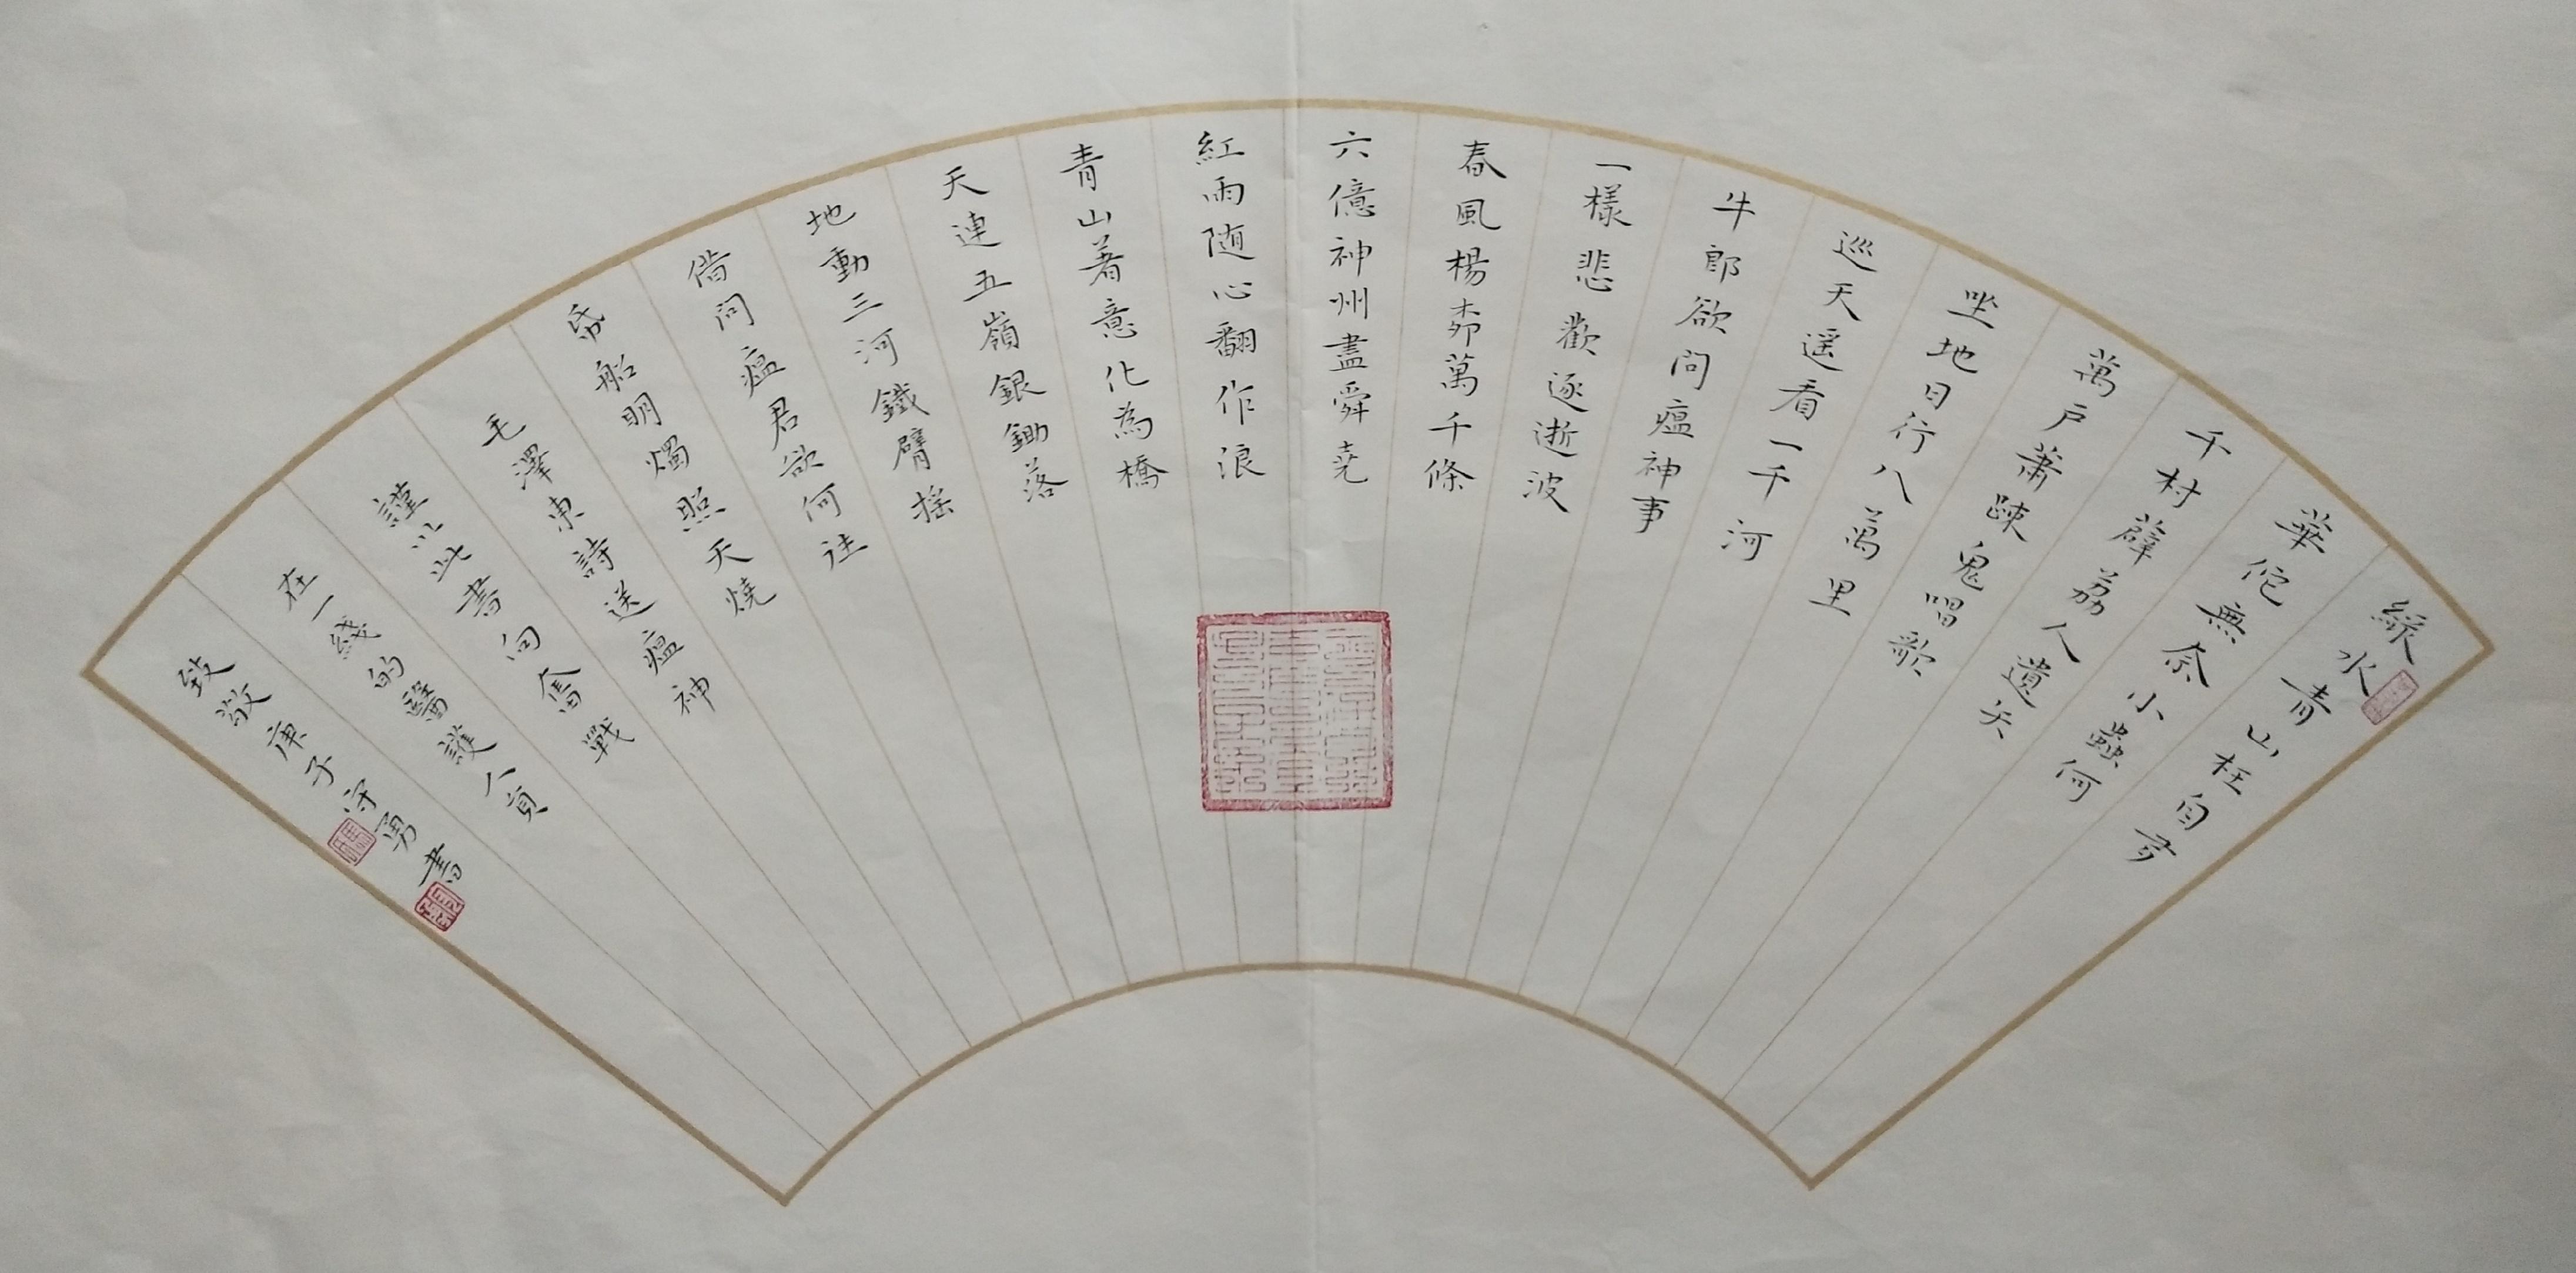 綠水青山枉自多
華佗無奈小蟲何
千村薜荔人遺矢
萬戶蕭疎鬼唱歌
坐地日行八萬里
巡天遥看一千河
牛郎欲問瘟神事
一樣悲歡逐逝波
春風楊柳萬千條
六億神州盡舜堯
紅雨随心翻作浪
青山着意化為橋
天連五嶺銀鋤落
地動三河鐵臂摇
借問瘟君欲何往
帋船明燭照天燒
毛澤東詩送瘟神
謹以此書向奮戰
在一綫的醫護人員
致敬庚子守勇書